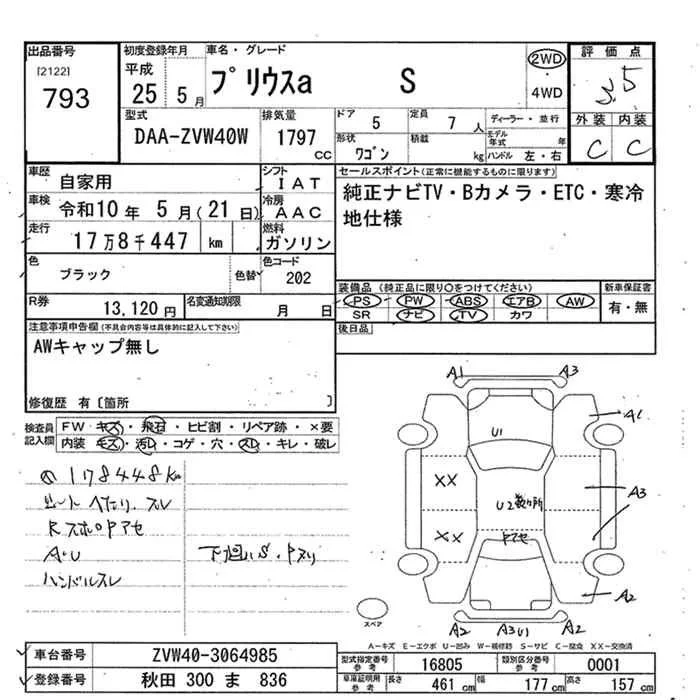 出品番号
[2122]
793
初度登録年月
平成
25 5月
車名・グレード
プリウスa S
2WD
・4WD
評価点
3.5
外装 内装
C C
型式
DAA-ZVW40W
排気量
1797
CC
ドア
5
定員
7人
ディーラー・並行
形状
ワゴン
積載
kg
モデル年式
年
ハンドル 左・右
車歴
自家用
シフト
IAT
車検
令和10年 5月(21日)
冷房
AAC
走行
17万8千447 km
燃料
ガソリン
色
ブラック
色替
色コード
202
R券
13,120円
名変通知期限
月 日
セールスポイント(正常に機能するものに限ります)
純正ナビTV・Bカメラ・ETC・寒冷
地仕様
装備品(純正品に限り○をつけてください)
新車保証書
PS PW ABS エアB AW
有・無
SR ナビ TV カワ
後日品
注意事項申告欄(不具合内容等は具体的に記入して下さい)
AWキャップ無し
修復歴 有〔箇所 〕
検査員
記入欄
FW キズ・飛石・ヒビ割・リペア跡・×要
内装 キズ・汚レ・コゲ・穴・スレ・キレ・破レ
178448K
シートヘたり、スレ
RスポロPアセ
A・U
ハンドルスレ
下廻りS・Pスリ
A1 A3
U1
A1
XX
U2
A3
XX
Pアセ
A2
A2 A3U1 A2
スペア
A-キズ E-エクボ U-凹み W-補修跡 S-サビ C-腐食 XX-交換済
車台番号
ZVW40-3064985
登録番号
秋田 300 ま 836
型式指定番号
参考
16805
類別区分番号
参考
0001
車庫証明用
参考
長さ
461 cm
幅
177 cm
高さ
157 cm